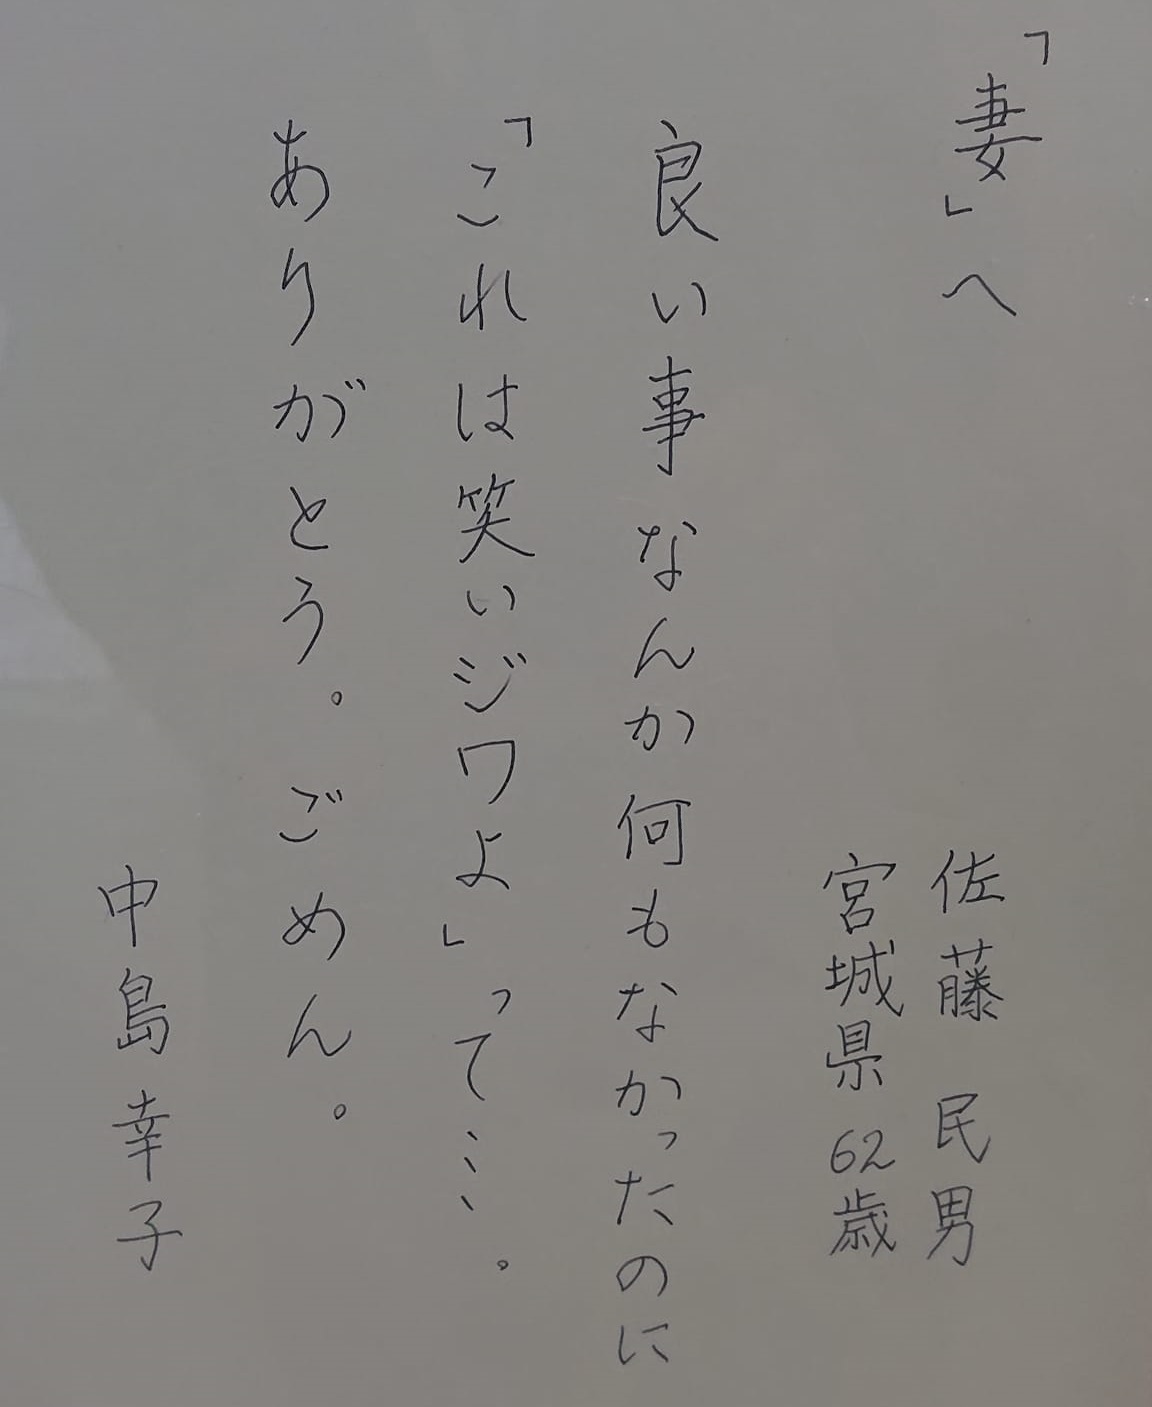 「妻」へ
佐藤 民男
宮城県 62歳
良い事なんか何もなかったのに
「これは笑いジワよ」って…。
ありがとう。ごめん。
中島幸子